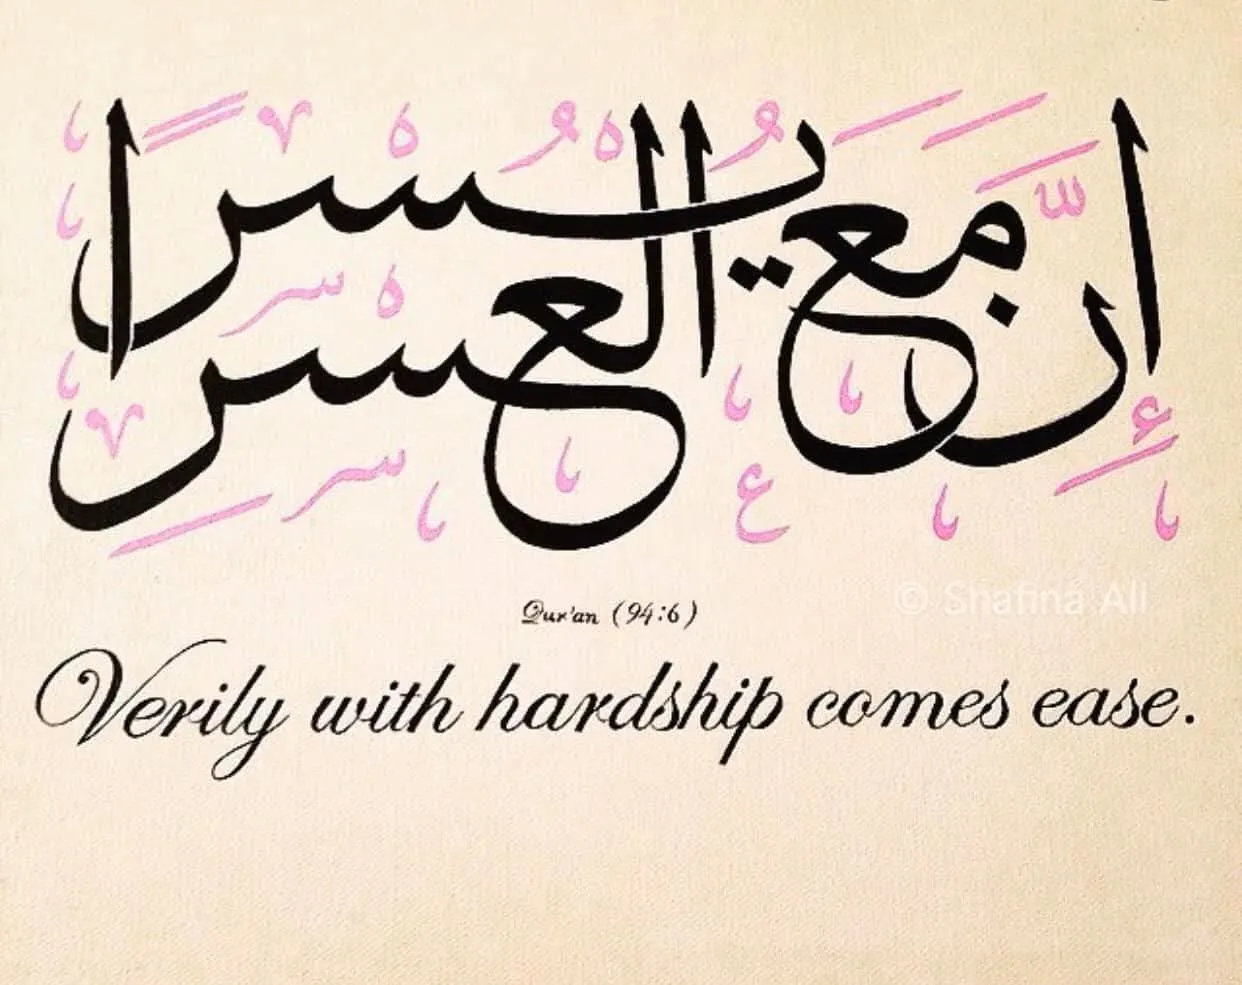 إِنَّ مَعَ الْعُسْرِ يُسْرًا
Qur'an (94:6)
© Shafina Ali
Verily with hardship comes ease.